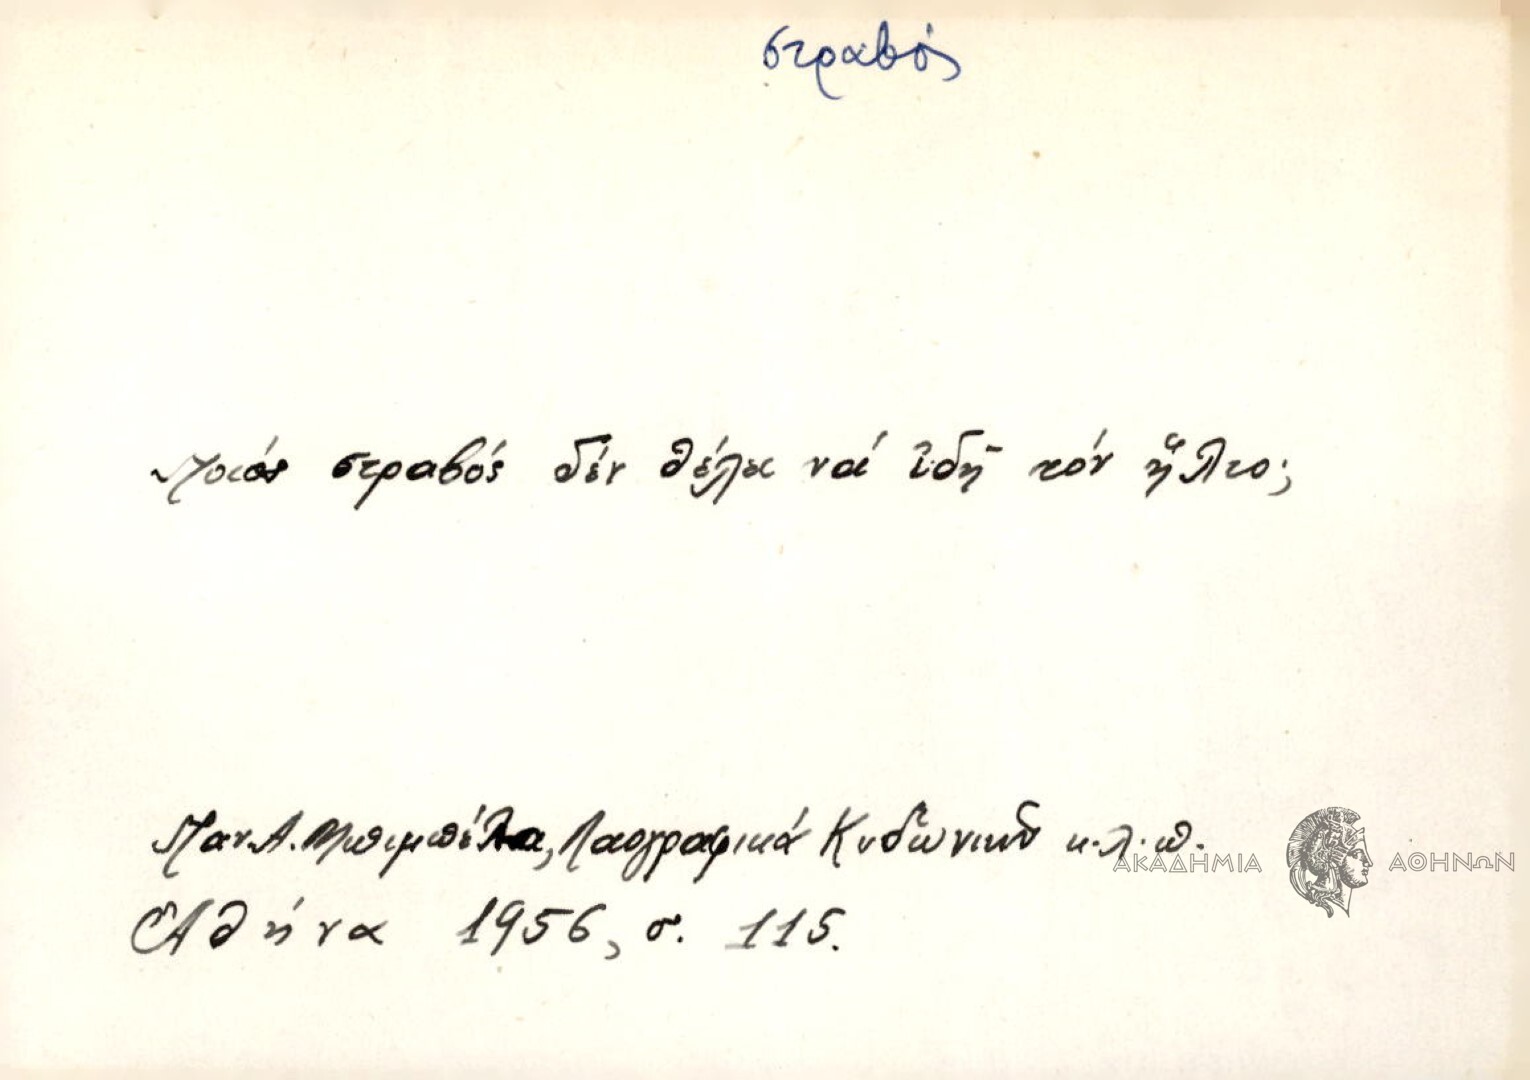 στραβός
Ποιός στραβός δέν θέλει νά ἰδῆ τόν ἥλιο;
Παν. Α. Μπιμπέλα, Λαογραφικά Κυδωνιῶν κ.λ.π.
ΑΚΑΔΗΜΙΑ ΑΘΗΝΩΝ
Ἀθήνα 1956, σ. 115.